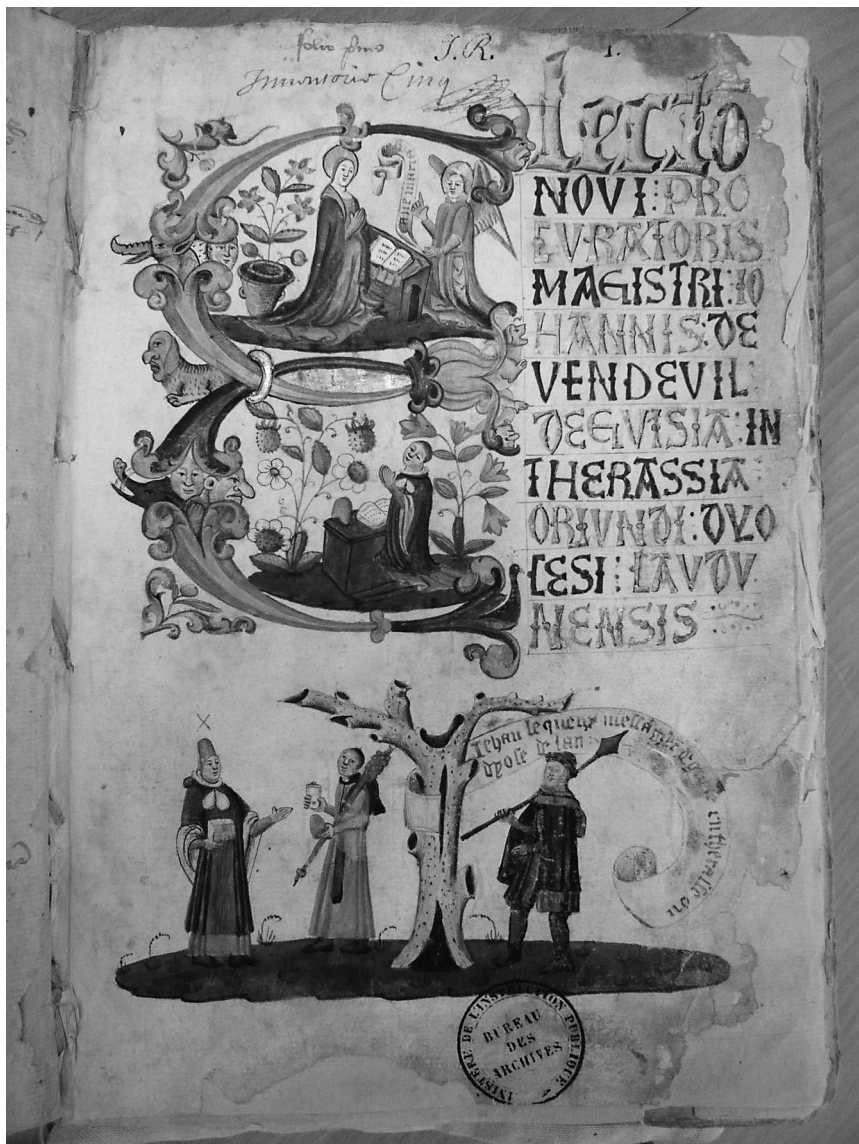 folio primo
J. R.
1.
Inventorié Cinq
Electio
NOVI : PRO
CVRATORIS
MAGISTRI : IO
HANNIS : DE
VENDEVIL
DEGVISIA : IN
THERASSIA
ORIVNDI : DVO
CESI : LAVDV
NENSIS
Ave maria
Jehan le queux messagier
de lan
MINISTERE DE L'INSTRUCTION PUBLIQUE
BUREAU
DES
ARCHIVES